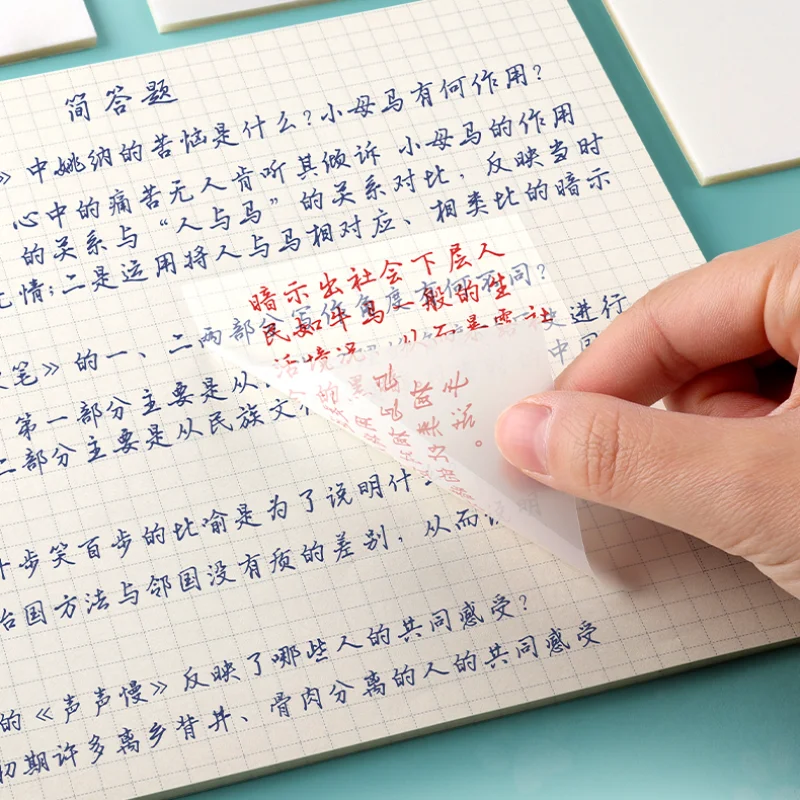 简答题
》中姚纳的苦恼是什么?小母马有何作用?
心中的痛苦无人肯听其倾诉 小母马的作用
的关系与“人与马”的关系对比,反映当时
无情;二是运用将人与马相对应、相类比的暗示
暗示出社会下层人
民如牛马一般的生
活境况,从而暴露社
两部分写作角度有何不同?
笔》的一、二
第一部分主要是从
进行
二部分主要是从民族文
中国
步笑百步的比喻是为了说明什
治国方法与邻国没有质的差别,从而说明
的《声声慢》反映了哪些人的共同感受?
初期许多离乡背井、骨肉分离的人的共同感受